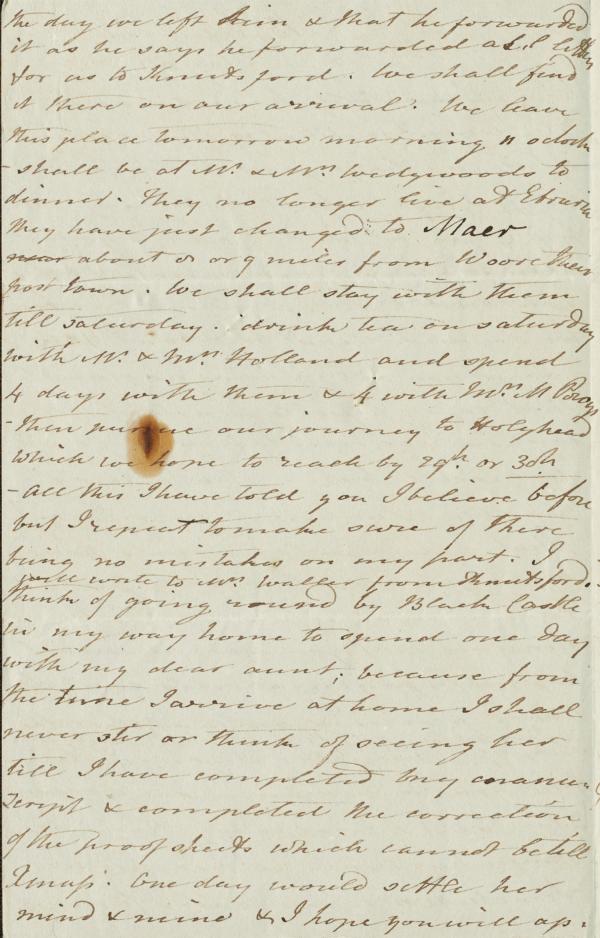 the day we left him & that he forwarded
it as he says he forwarded all letters
for us to Knutsford. We shall find
it there on our arrival. We leave
this place tomorrow morning 11 oclock
- shall be at Mr. & Mrs Wedgwoods to
dinner. They no longer live at Etruria
they have just changed to Maer
near about 8 or 9 miles from Woore their
post town. We shall stay with them
till Saturday. drink tea on Saturday
with Mr. & Mrs Holland and spend
4 days with them & 4 with Mrs M Powys
- then pursue our journey to Holyhead
which we hope to reach by 29th. or 30th
- all this I have told you I believe before
but I repeat to make sure of there
being no mistakes on my part. I
will write to Mrs Waller from Knutsford.
think of going round by Black Castle
in my way home to spend one day
with my dear aunt; because from
the time I arrive at home I shall
never stir or think of seeing her
till I have completed my manu
script & completed the correction
of the proof sheets which cannot be till
Xmass. One day would settle her
mind & mine & I hope you will ap-